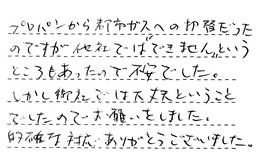 プロパンから都市ガスへの切替だった
のですが他社では"できません"という
ところもあったので不安でした。
しかし御社では大丈夫ということ
でしたのでお願いをしました。
的確な対応ありがとうございました。